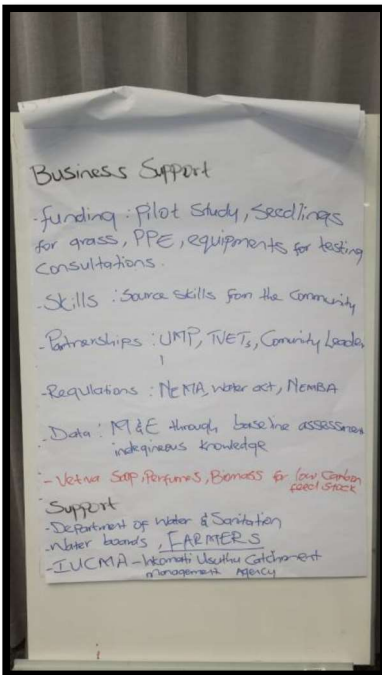 Business Support
- Funding : Pilot Study, Seedlings
for grass, PPE, equipments for testing
Consultations.
- Skills : Source skills from the Community
- Partnerships : UMP, TVETs, Comunity Leader
- Regulations : NEMA, Water act, NEMBA
- Data : M&E through baseline assessmen
indegineous knowledge
- Vetiva Soap, Perfumes, Biomass for low Carbon
feed stock
Support
- Department of Water & Sanitation
- Water boards, FARMERS
- IUCMA - Inkomati Usuthu Catchment
Management Agency